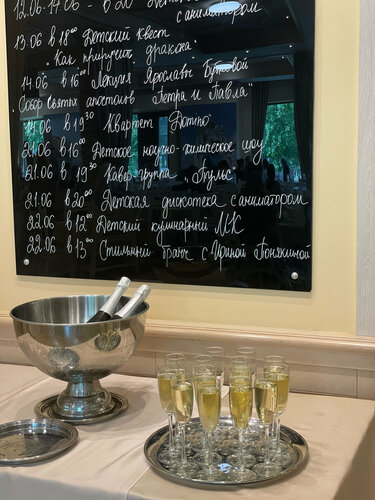 12.06-17.06 - в 20
с аниматором
13.06 в 18⁰⁰ Детский Квест
"Как приручить дракона"
14.06 в 16⁰⁰ Лекция Ярославы Бубновой
"Собор святых апостолов Петра и Павла"
14.06 в 19³⁰ Квартет "Домино"
21.06 в 16⁰⁰ Детское научно-химическое шоу
21.06 в 19³⁰ Кавер группа "Пульс"
21.06 в 20⁰⁰ Детская дискотека с аниматором
22.06 в 12⁰⁰ Детский кулинарный МК
22.06 в 13⁰⁰ Стильный бранч с Ириной Понякиной